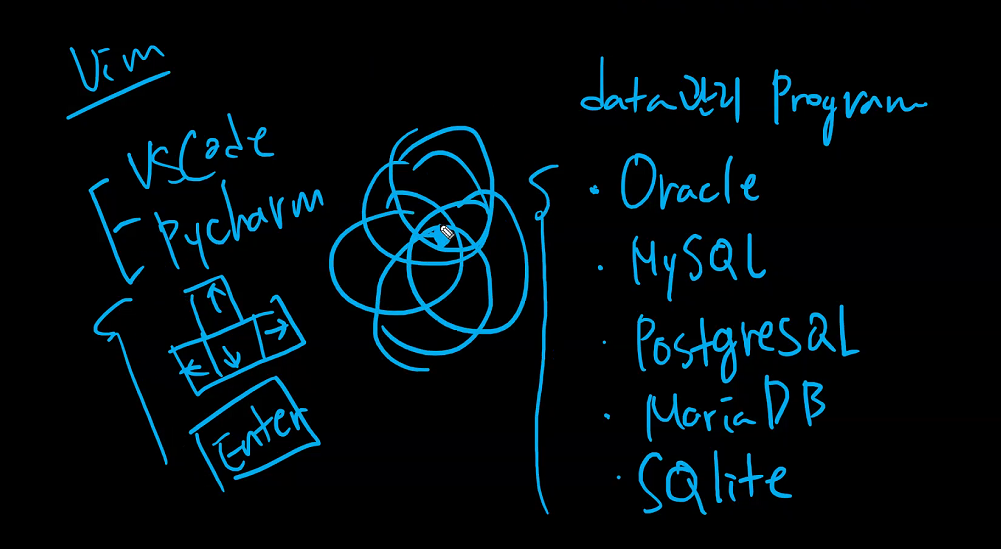 Vim
VSCode
Pycharm
↑
← ↓ →
Enter
data관리 Program
· Oracle
· MySQL
· PostgreSQL
· MariaDB
· SQlite